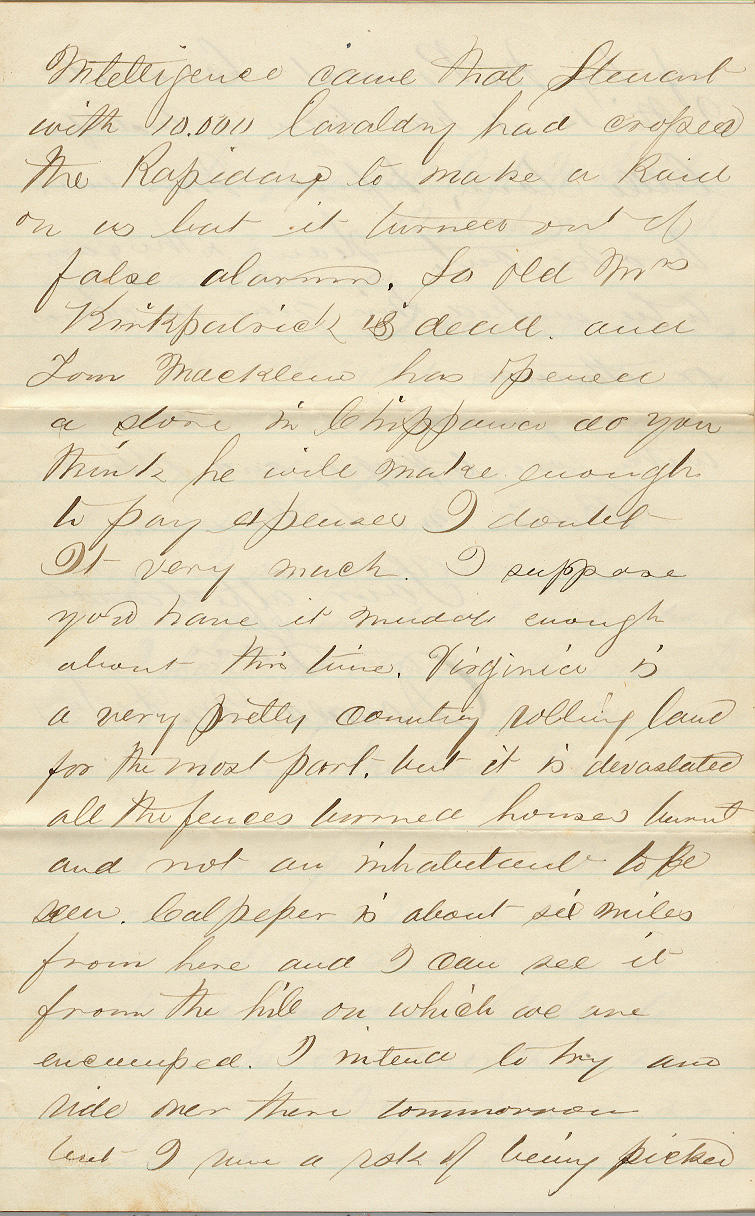 Intelligence came that Steuart
with 10.000 Cavaldry had crossed
the Rapidang to make a Raid
on us but it turned out a
false alarm. So old Mrs
Kirkpatrick is dead. and
Tom Macklem has opened
a store in Chippawa do you
think he will make enough
to pay expenses I doubt
It very much. I suppose
you have it muddy enough
about this time. Virginia is
a very pretty country rolling land
for the most part. but it is devastated
all the fences burned houses burnt
and not an inhabitant to be
seen. Culpeper is about six miles
from here and I can see it
from the hill on which we are
encamped. I intend to try and
ride over there tommorrow
but I run a risk of being picked